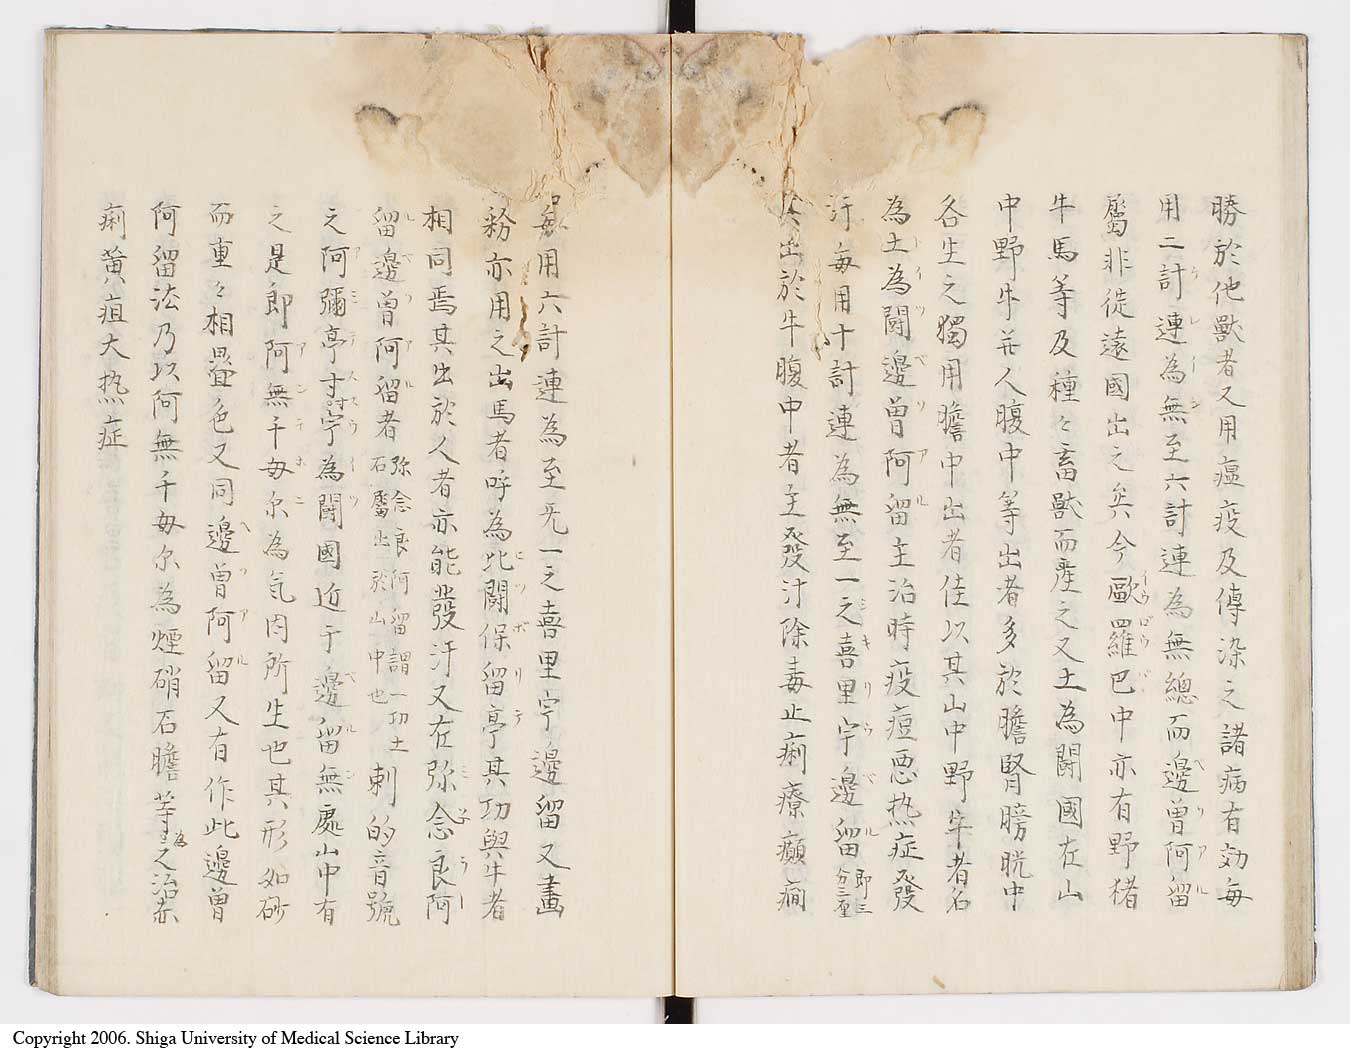 勝於他獸者又用瘟疫及傳染之諸病有効毎
用二計連為無至六計連為無總而邊曾阿留
屬非徒遠國出之矣今歐羅巴中亦有野猪
牛馬等及種々畜獸而産之又土為闘國在山
中野牛并人腹中等出者多於膽腎膀胱中
各生之獨用膽中出者佳以其山中野牛者名
為土為闘邊曾阿留主治時疫痘悪热症發
汗毎用十計連為無至一之喜里宇邊留即三分三厘
其出於牛腹中者主發汁除毒止痢療癲癇
毎用六計連為至旡一之喜里宇邊留又畫
粉亦用之出馬者呼為比闘保留亭其功與牛者
相同焉其出於人者亦能發汗又在弥念良阿
留邊曾阿留者弥念良阿留謂一切土石屬出於山中也剌的音號
之阿彌亭寸宇為闘國近于邊留無處山中有
之是郎阿無千毎尓為気因所生也其形如砂
而重々相疊色又同邊曾阿留又有作此邊曾
阿留法乃以阿無千毎尓為煙硝石膽等為之治赤
痢黄疸大热症
Copyright 2006. Shiga University of Medical Science Library